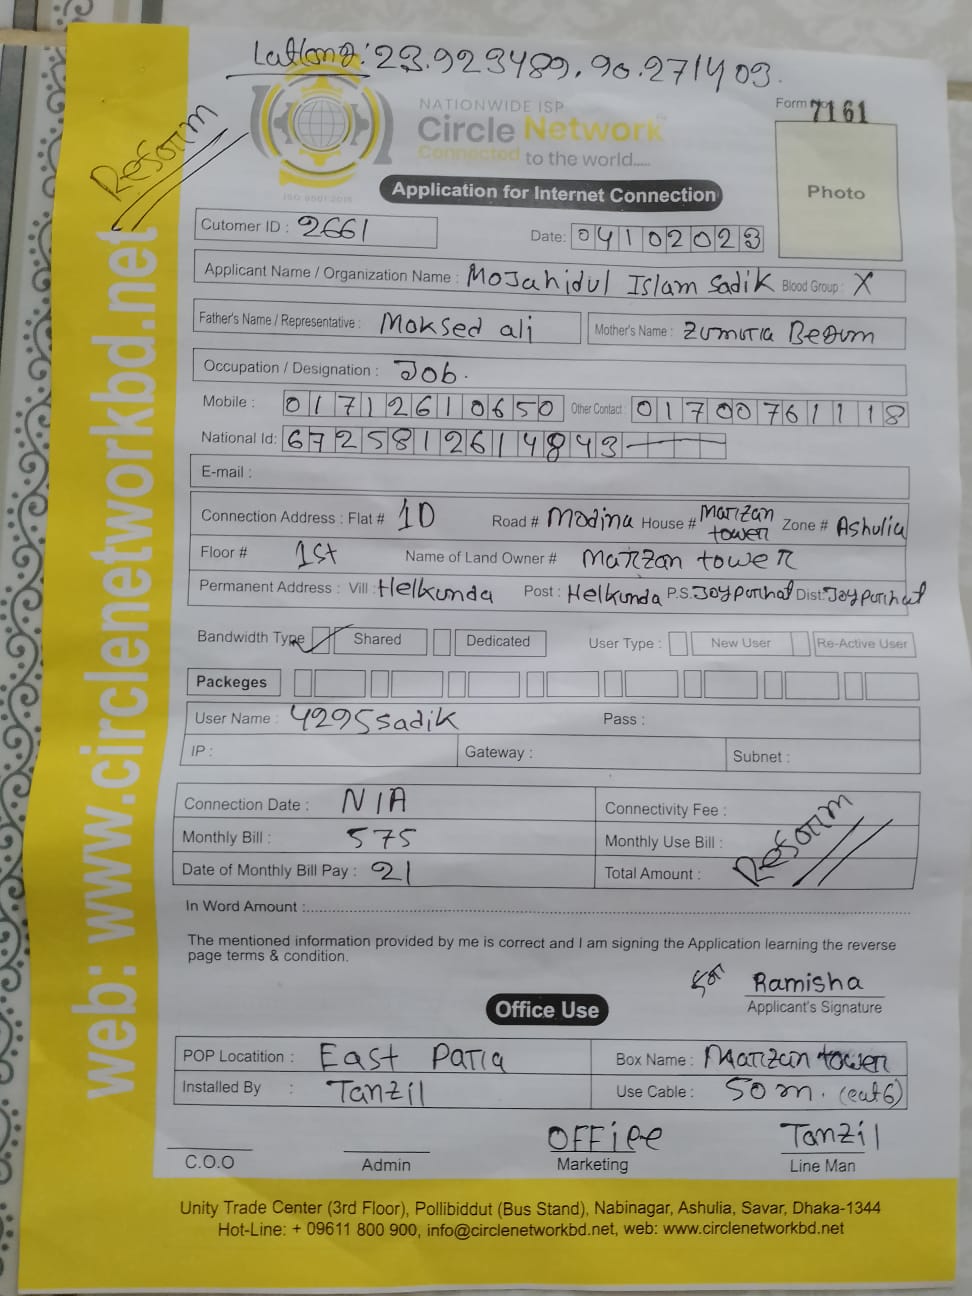 Latlong: 23.923489, 90.271403.
Resorm
NATIONWIDE ISP
Circle Network
Connected to the world.....
ISO 9001:2015
Form No 7161
Photo
Application for Internet Connection
Cutomer ID : 2661
Date: 04102023
Applicant Name / Organization Name : Mojahidul Islam Sadik Blood Group : X
Father's Name / Representative : Moksed ali Mother's Name : Zumura Begum
Occupation / Designation : Job.
Mobile : 01712610650 Other Contact : 01700761118
National Id: 6725812614843
E-mail :
Connection Address : Flat # 1D Road # Modina House # Marzan tower Zone # Ashulia
Floor # 1st Name of Land Owner # Marzan tower
Permanent Address : Vill : Helkunda Post : Helkunda P.S. Joypurhat Dist: Joypurhat
Bandwidth Type Shared Dedicated User Type : New User Re-Active User
Packeges
User Name : 4295sadik Pass :
IP : Gateway : Subnet :
Connection Date : N/A Connectivity Fee :
Monthly Bill : 575 Monthly Use Bill :
Date of Monthly Bill Pay : 21 Total Amount :
Resorm
In Word Amount :
The mentioned information provided by me is correct and I am signing the Application learning the reverse
page terms & condition.
Ramisha
Applicant's Signature
Office Use
POP Locatition : East Paria Box Name : Marzan tower
Installed By : Tanzil Use Cable : 50 m. (cat6)
OFFice Tanzil
C.O.O Admin Marketing Line Man
Unity Trade Center (3rd Floor), Pollibiddut (Bus Stand), Nabinagar, Ashulia, Savar, Dhaka-1344
Hot-Line: + 09611 800 900, info@circlenetworkbd.net, web: www.circlenetworkbd.net
web: www.circlenetworkbd.net